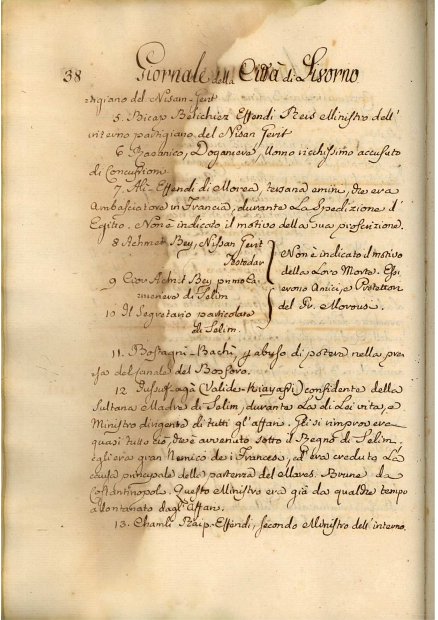 38 Giornale della Città di Livorno
tigiano del Nisam-Gerit
5. Bicap Belichiez Effendi Reis Ministro dell'
interno partigiano del Nisan Gerit
6. Doganiere, Uomo ricchissimo accusato
di Concussione
7. Ali-Effendi di Morea, persona che era
Ambasciatore in Francia, durante La Spedizione d'
Egitto. Non è indicato il motivo della sua proscrizione.
8 Achmet Bey, Nissan Gerit
9 Bey primo Ca
meriere di Selim
10 Il Segretario particolare
di Selim.
Non è indicato il motivo
della Loro Morte. Es
serono Amici, e Protettori
del Pr.
11. Bostagni-Bachi, abuso di potere nella pre
sa del fanale del Bosforo.
12 Jussuf-agà (Valide-Kiayassi) confidente della
Sultana Madre di Selim, durante La di Lei vita, e
Ministro dirigente di tutti gl'affari. Gli si rimprovera
quasi tutto ciò, che è avvenuto sotto il Regno di Selim.
egli era gran Nemico de i Francesi, ed era creduto La
causa principale della partenza del Mares. Brune da
Costantinopoli. Questo Ministro era già da qualche tempo
allontanato dagl'affari.
13. Chamli Raip-Effendi, secondo Ministro dell'interno.